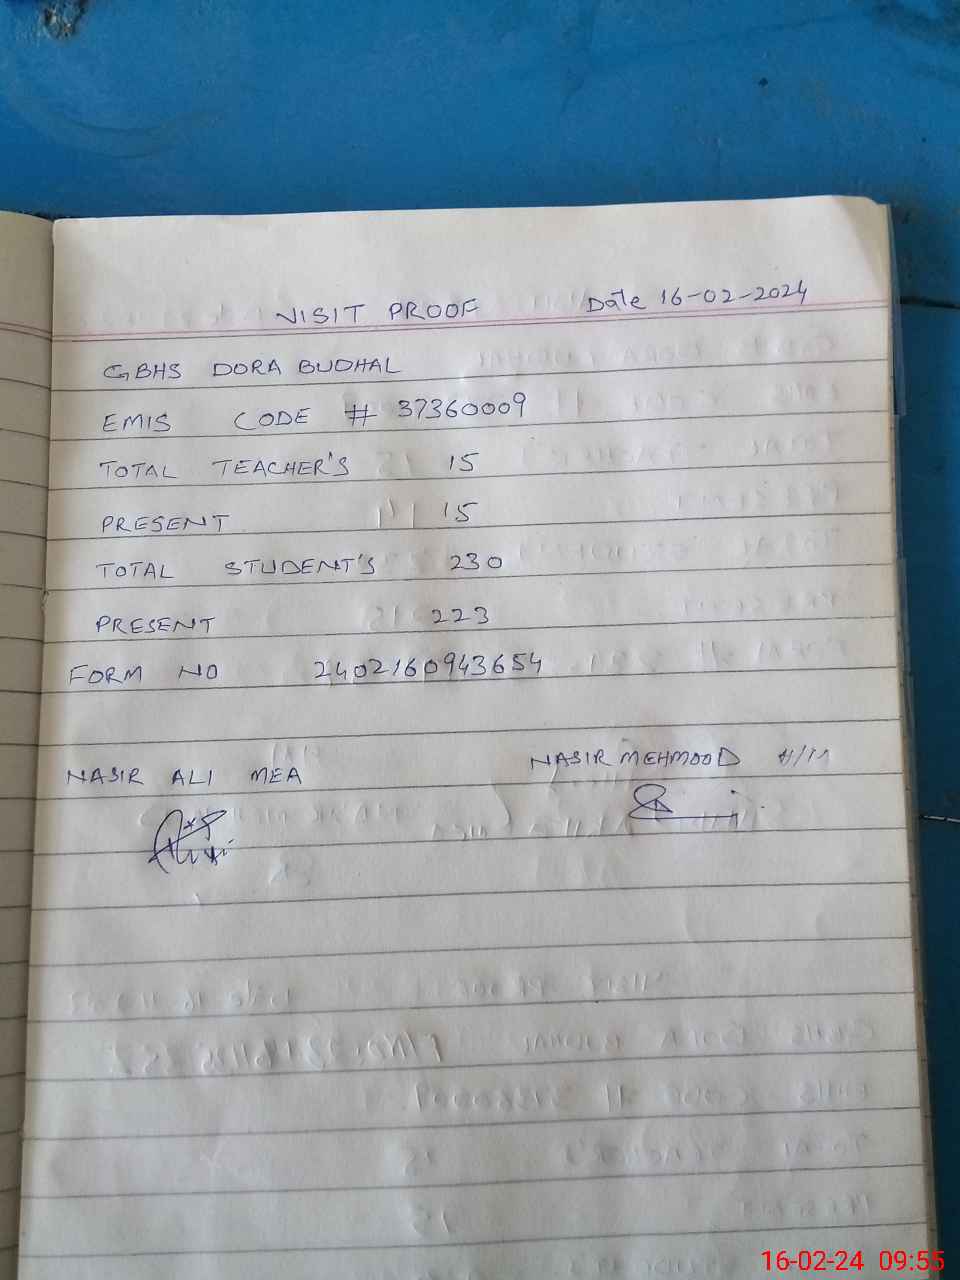 VISIT PROOF Date 16-02-2024
GBHS DORA BUDHAL
EMIS CODE # 37360009
TOTAL TEACHER'S 15
PRESENT 15
TOTAL STUDENT'S 230
PRESENT 223
FORM NO 2402160943654
NASIR ALI MEA NASIR MEHMOOD H/M
16-02-24 09:55